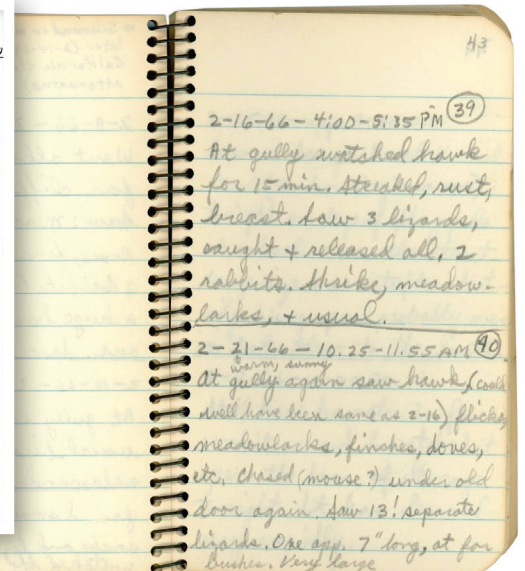 43
2-16-66 - 4:00-5:35 PM 39
At gully watched hawk
for 15 min. Streaked, rust,
breast. Saw 3 lizards,
caught + released all, 2
rabbits. Shrike, meadow-
larks, + usual.
2-21-66 - 10.25-11.55 AM 40
warm, sunny
At gully again saw hawk, (could
well have been same as 2-16) flicker,
meadowlarks, finches, doves,
etc. Chased (mouse?) under old
door again. Saw 13! separate
lizards. One app. 7" long, at far
bushes. Very large